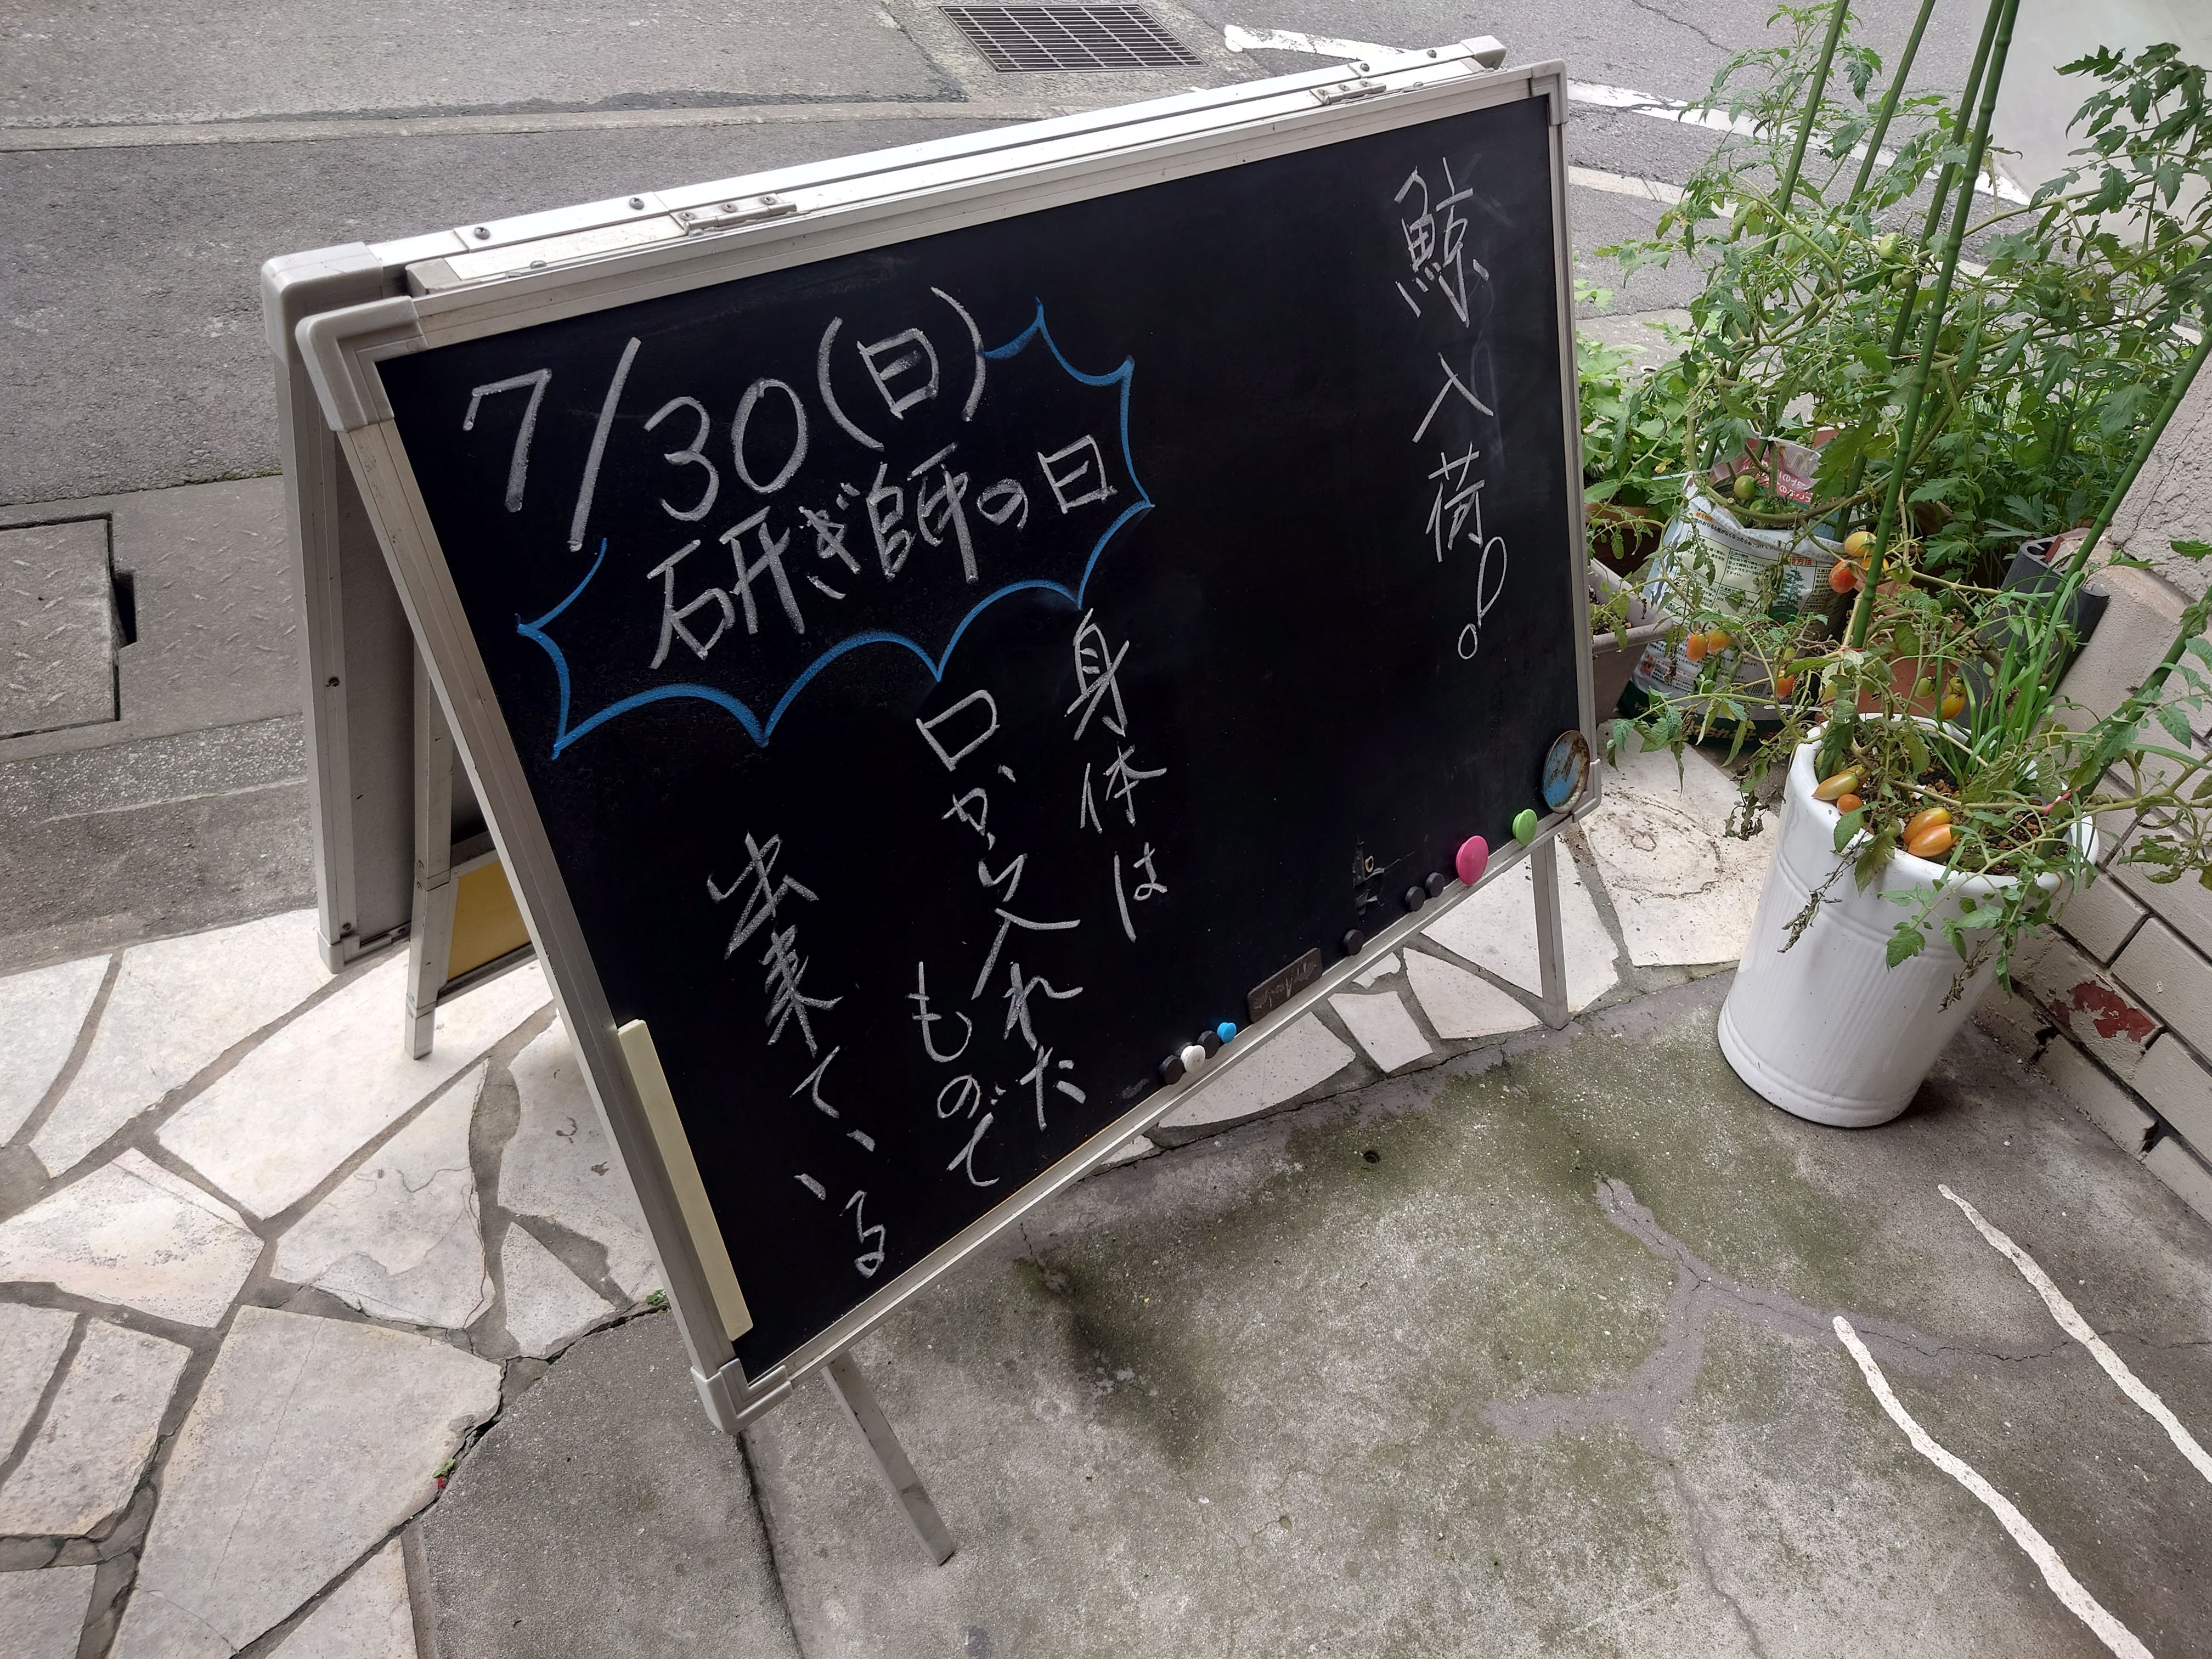 鯨入荷!
7/30(日)
研ぎ師の日
身体は
口から入れた
もので
出来ている